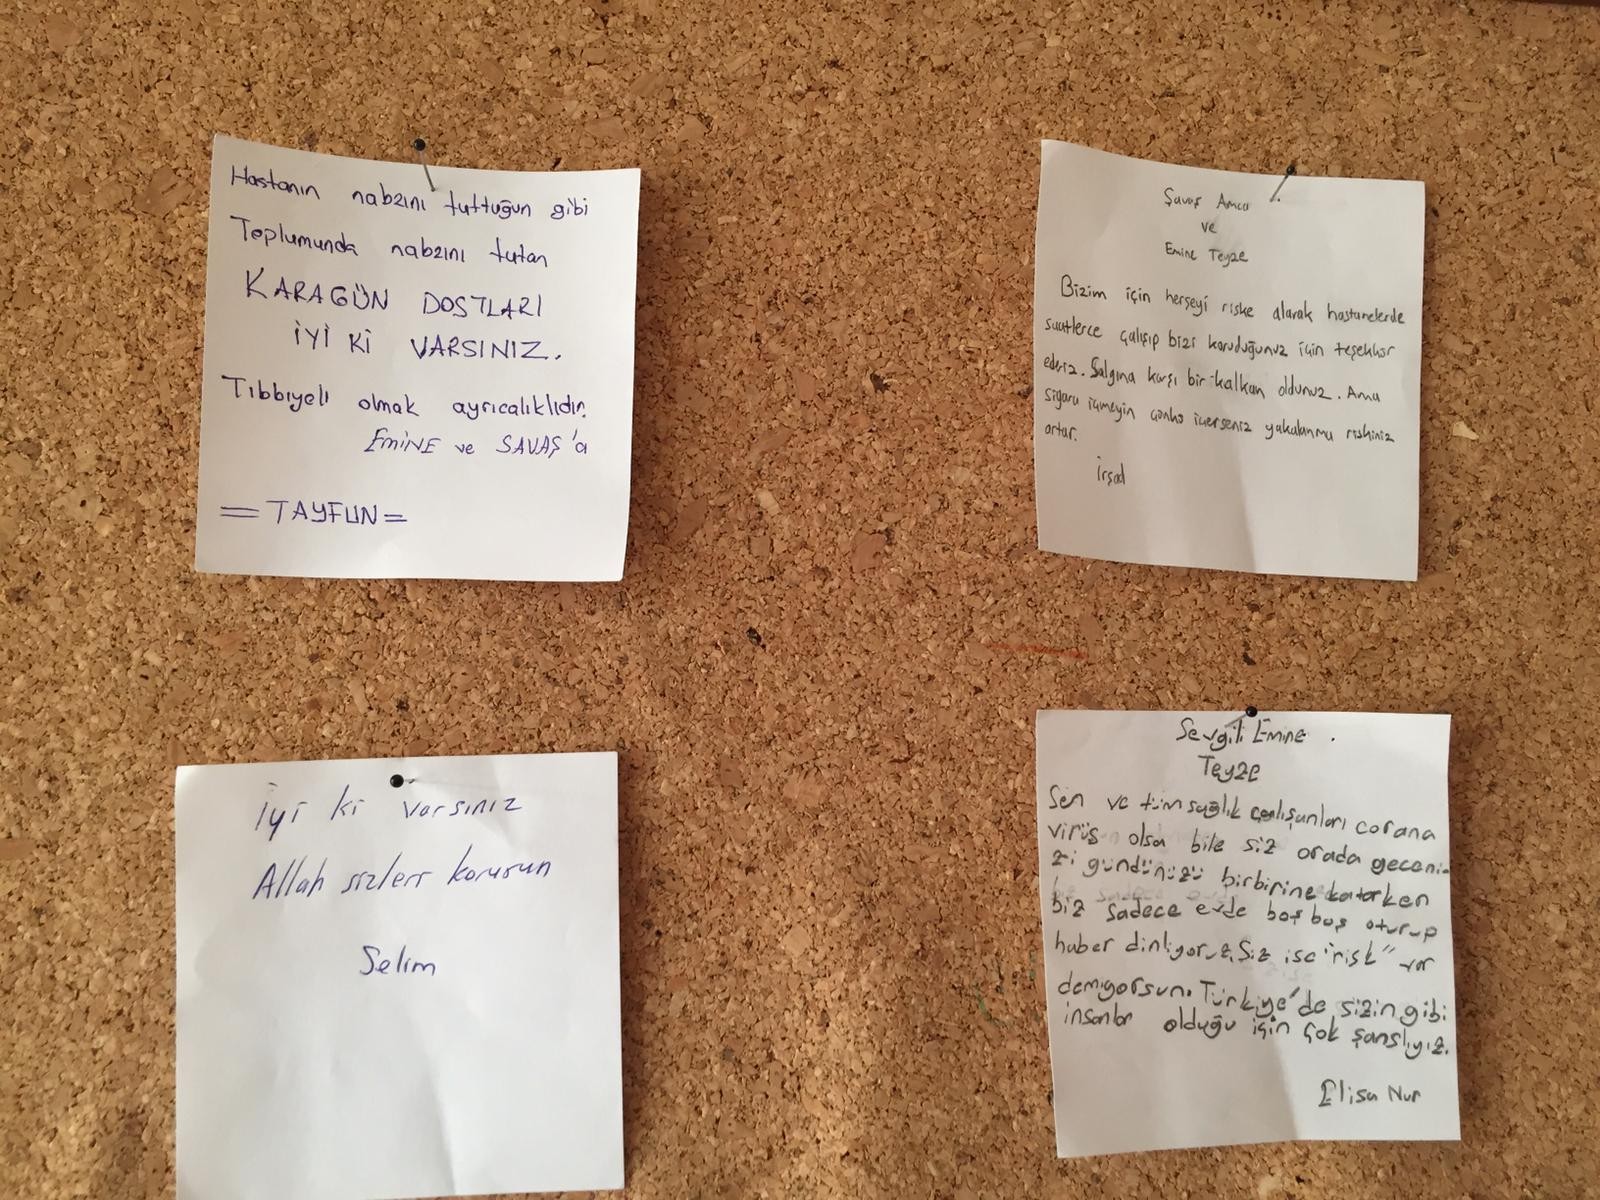 Hastanın nabzını tuttuğun gibi
Toplumunda nabzını tutan
KARAGÜN DOSTLARI
İYİ Kİ VARSINIZ.
Tıbbıyeli olmak ayrıcalıklıdır.
EMİNE ve SAVAŞ'a
=TAYFUN=
Şavaş Amca
ve
Emine Teyze
Bizim için herşeyi riske alarak hastanelerde
saatlerce çalışıp bizi koruduğunuz için teşekkür
ederiz. Salgına karşı bir kalkan oldunuz. Ama
sigara içmeyin çünkü içerseniz yakalanma riskiniz
artar.
İrşad
İyi ki varsınız
Allah sizleri korusun
Selim
Sevgili Emine
Teyze
Sen ve tüm sağlık çalışanları corana
virüs olsa bile siz orada geceni-
zi gündünüzü birbirine katarken
biz sadece evde boş boş oturup
haber dinliyoruz. Siz ise "risk" var
demiyorsun. Türkiye'de sizin gibi
insanlar olduğu için çok şanslıyız.
Elisa Nur